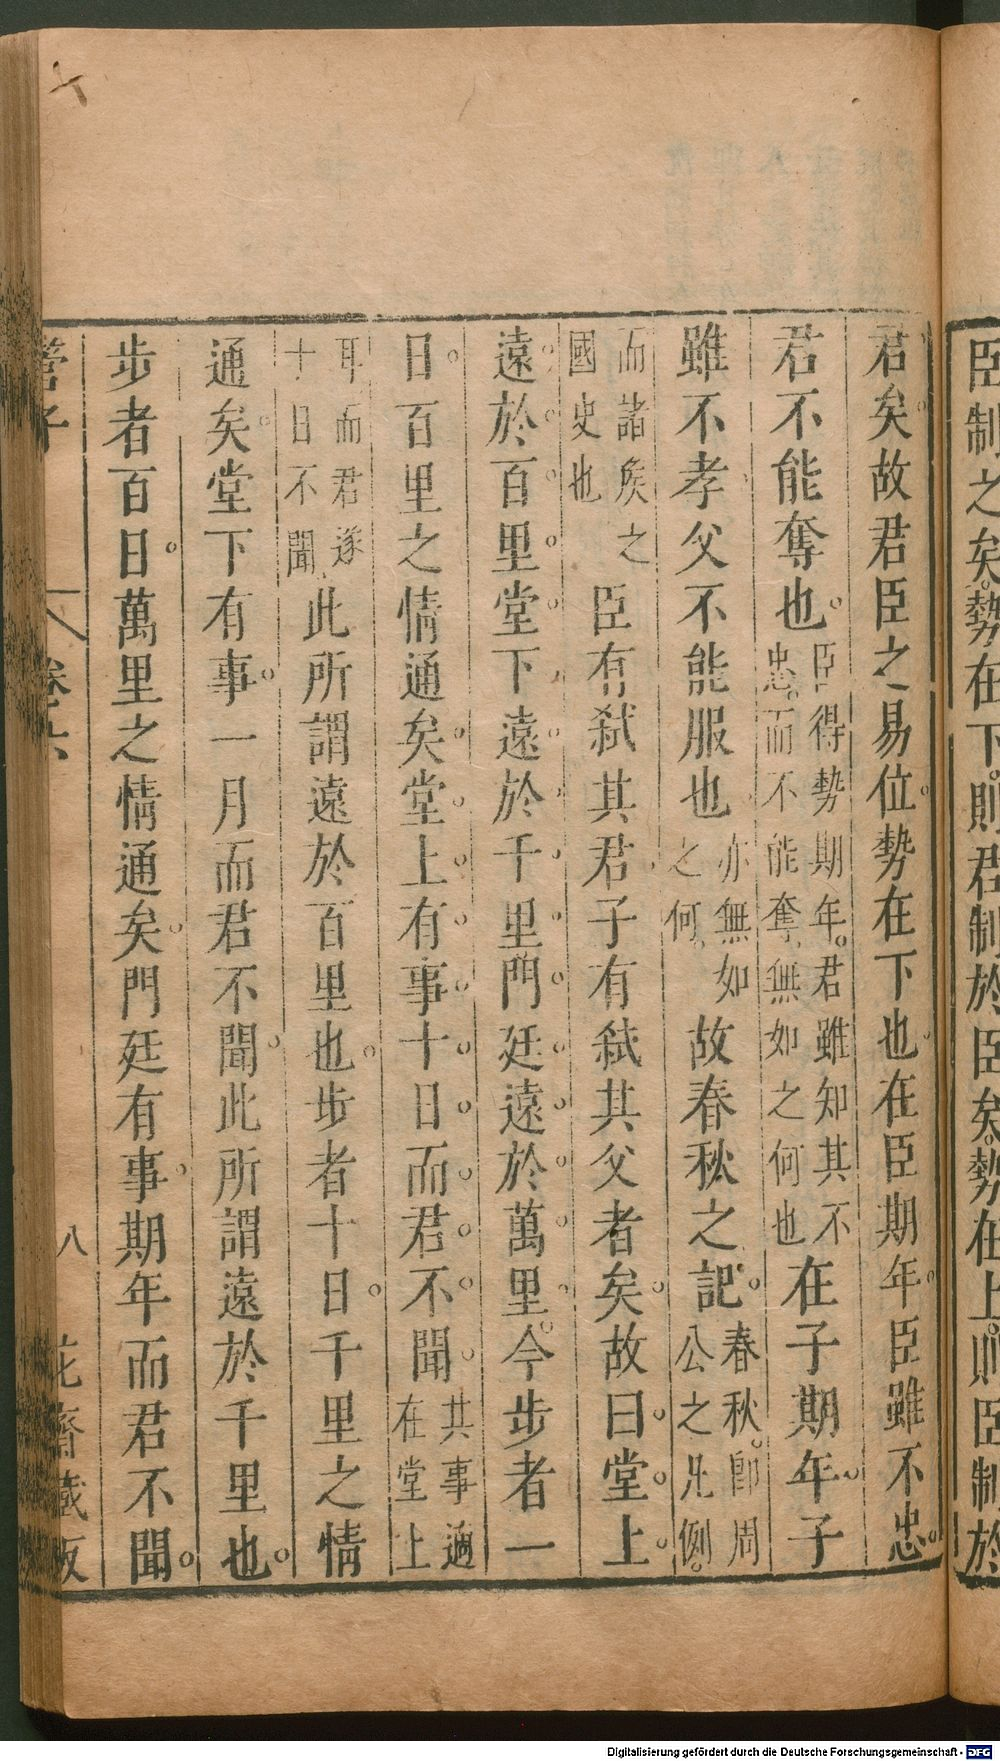 臣制之矣。勢在下。則君制於臣矣。勢在上。則臣制於
君矣故君臣之易位。勢在下也。在臣期年。臣雖不忠。
君不能奪也。臣得勢期年。君雖知其不忠。而不能奪無如之何也在子期年。子
雖不孝父不能服也亦無如之何故春秋之記。春秋。卽周公之凡例。
而諸矦之國史也臣有弑其君子有弑其父者矣。故曰。堂。上。
遠。於。百。里。堂。下。遠。於。千。里。門。廷。遠。於。萬。里。今步者一
日。百里之情通矣。堂。上。有。事。十。日。而。君。不。聞。其事遍在堂上
耳而君遂十日不聞此所謂遠於百里也。步者十日。千里之情
通矣。堂下有事。一月而君不聞。此所謂遠於千里也。
步者百日。萬里之情通矣。門廷有事。期年而君不聞。
管子 卷六 八 花齋藏板
Digitalisierung gefördert durch die Deutsche Forschungsgemeinschaft - DFG